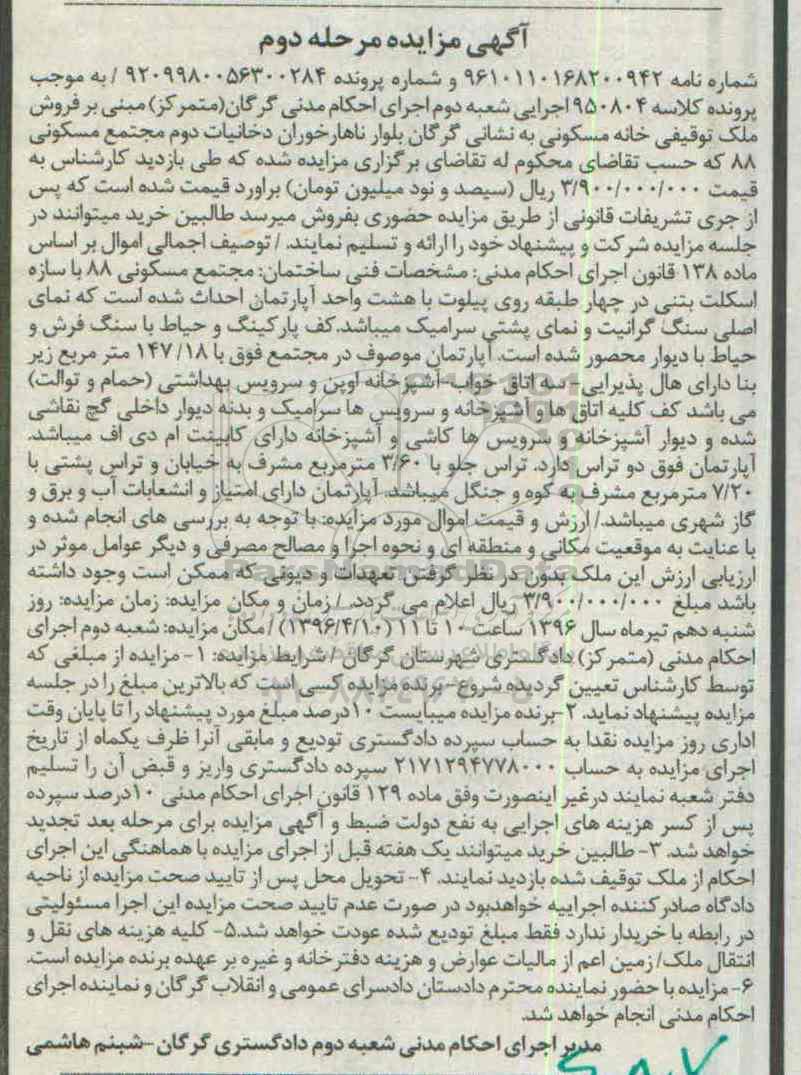 آگهی مزایده مرحله دوم
شماره نامه ۹۶۱۰۱۱۰۱۶۸۲۰۰۹۴۲ و شماره پرونده ۹۲۰۹۹۸۰۰۵۶۳۰۰۲۸۴ / به موجب
پرونده کلاسه ۹۵۰۸۰۴ اجرایی شعبه دوم اجرای احکام مدنی گرگان(متمرکز) مبنی بر فروش
ملک توقیفی خانه مسکونی به نشانی گرگان بلوار ناهارخوران دخانیات دوم مجتمع مسکونی
۸۸ که حسب تقاضای محکوم له تقاضای برگزاری مزایده شده که طی بازدید کارشناس به
قیمت ۳/۹۰۰/۰۰۰/۰۰۰ ریال (سیصد و نود میلیون تومان) براورد قیمت شده است که پس
از جری تشریفات قانونی از طریق مزایده حضوری بفروش میرسد طالبین خرید میتوانند در
جلسه مزایده شرکت و پیشنهاد خود را ارائه و تسلیم نمایند. / توصیف اجمالی اموال بر اساس
ماده ۱۳۸ قانون اجرای احکام مدنی: مشخصات فنی ساختمان: مجتمع مسکونی ۸۸ با سازه
اسکلت بتنی در چهار طبقه روی پیلوت با هشت واحد آپارتمان احداث شده است که نمای
اصلی سنگ گرانیت و نمای پشتی سرامیک میباشد.کف پارکینگ و حیاط با سنگ فرش و
حیاط با دیوار محصور شده است. آپارتمان موصوف در مجتمع فوق با ۱۴۷/۱۸ متر مربع زیر
بنا دارای هال پذیرایی- سه اتاق خواب-آشپزخانه اوپن و سرویس بهداشتی (حمام و توالت)
می باشد کف کلیه اتاق ها و آشپزخانه و سرویس ها سرامیک و بدنه دیوار داخلی گچ نقاشی
شده و دیوار آشپزخانه و سرویس ها کاشی و آشپزخانه دارای کابینت ام دی اف میباشد.
آپارتمان فوق دو تراس دارد. تراس جلو با ۳/۶۰ مترمربع مشرف به خیابان و تراس پشتی با
۷/۲۰ مترمربع مشرف به کوه و جنگل میباشد. آپارتمان دارای امتیاز و انشعابات آب و برق و
گاز شهری میباشد./ ارزش و قیمت اموال مورد مزایده: با توجه به بررسی های انجام شده و
با عنایت به موقعیت مکانی و منطقه ای و نحوه اجرا و مصالح مصرفی و دیگر عوامل موثر در
ارزیابی ارزش این ملک بدون در نظر گرفتن تعهدات و دیونی که ممکن است وجود داشته
باشد مبلغ ۳/۹۰۰/۰۰۰/۰۰۰ ریال اعلام می گردد. / زمان و مکان مزایده: زمان مزایده: روز
شنبه دهم تیرماه سال ۱۳۹۶ ساعت ۱۰ تا ۱۱ (۱۳۹۶/۴/۱۰) / مکان مزایده: شعبه دوم اجرای
احکام مدنی (متمرکز) دادگستری شهرستان گرگان / شرایط مزایده: ۱- مزایده از مبلغی که
توسط کارشناس تعیین گردیده شروع-برنده مزایده کسی است که بالاترین مبلغ را در جلسه
مزایده پیشنهاد نماید. ۲-برنده مزایده میبایست ۱۰درصد مبلغ مورد پیشنهاد را تا پایان وقت
اداری روز مزایده نقدا به حساب سپرده دادگستری تودیع و مابقی آنرا ظرف یکماه از تاریخ
اجرای مزایده به حساب ۲۱۷۱۲۹۴۷۷۸۰۰۰ سپرده دادگستری واریز و قبض آن را تسلیم
دفتر شعبه نمایند درغیر اینصورت وفق ماده ۱۲۹ قانون اجرای احکام مدنی ۱۰درصد سپرده
پس از کسر هزینه های اجرایی به نفع دولت ضبط و آگهی مزایده برای مرحله بعد تجدید
خواهد شد. ۳- طالبین خرید میتوانند یک هفته قبل از اجرای مزایده با هماهنگی این اجرای
احکام از ملک توقیف شده بازدید نمایند. ۴- تحویل محل پس از تایید صحت مزایده از ناحیه
دادگاه صادرکننده اجراییه خواهدبود در صورت عدم تایید صحت مزایده این اجرا مسئولیتی
در رابطه با خریدار ندارد فقط مبلغ تودیع شده عودت خواهد شد.۵- کلیه هزینه های نقل و
انتقال ملک/ زمین اعم از مالیات عوارض و هزینه دفترخانه و غیره بر عهده برنده مزایده است.
۶- مزایده با حضور نماینده محترم دادستان دادسرای عمومی و انقلاب گرگان و نماینده اجرای
احکام مدنی انجام خواهد شد.
مدیر اجرای احکام مدنی شعبه دوم دادگستری گرگان-شبنم هاشمی
ParsNamadData